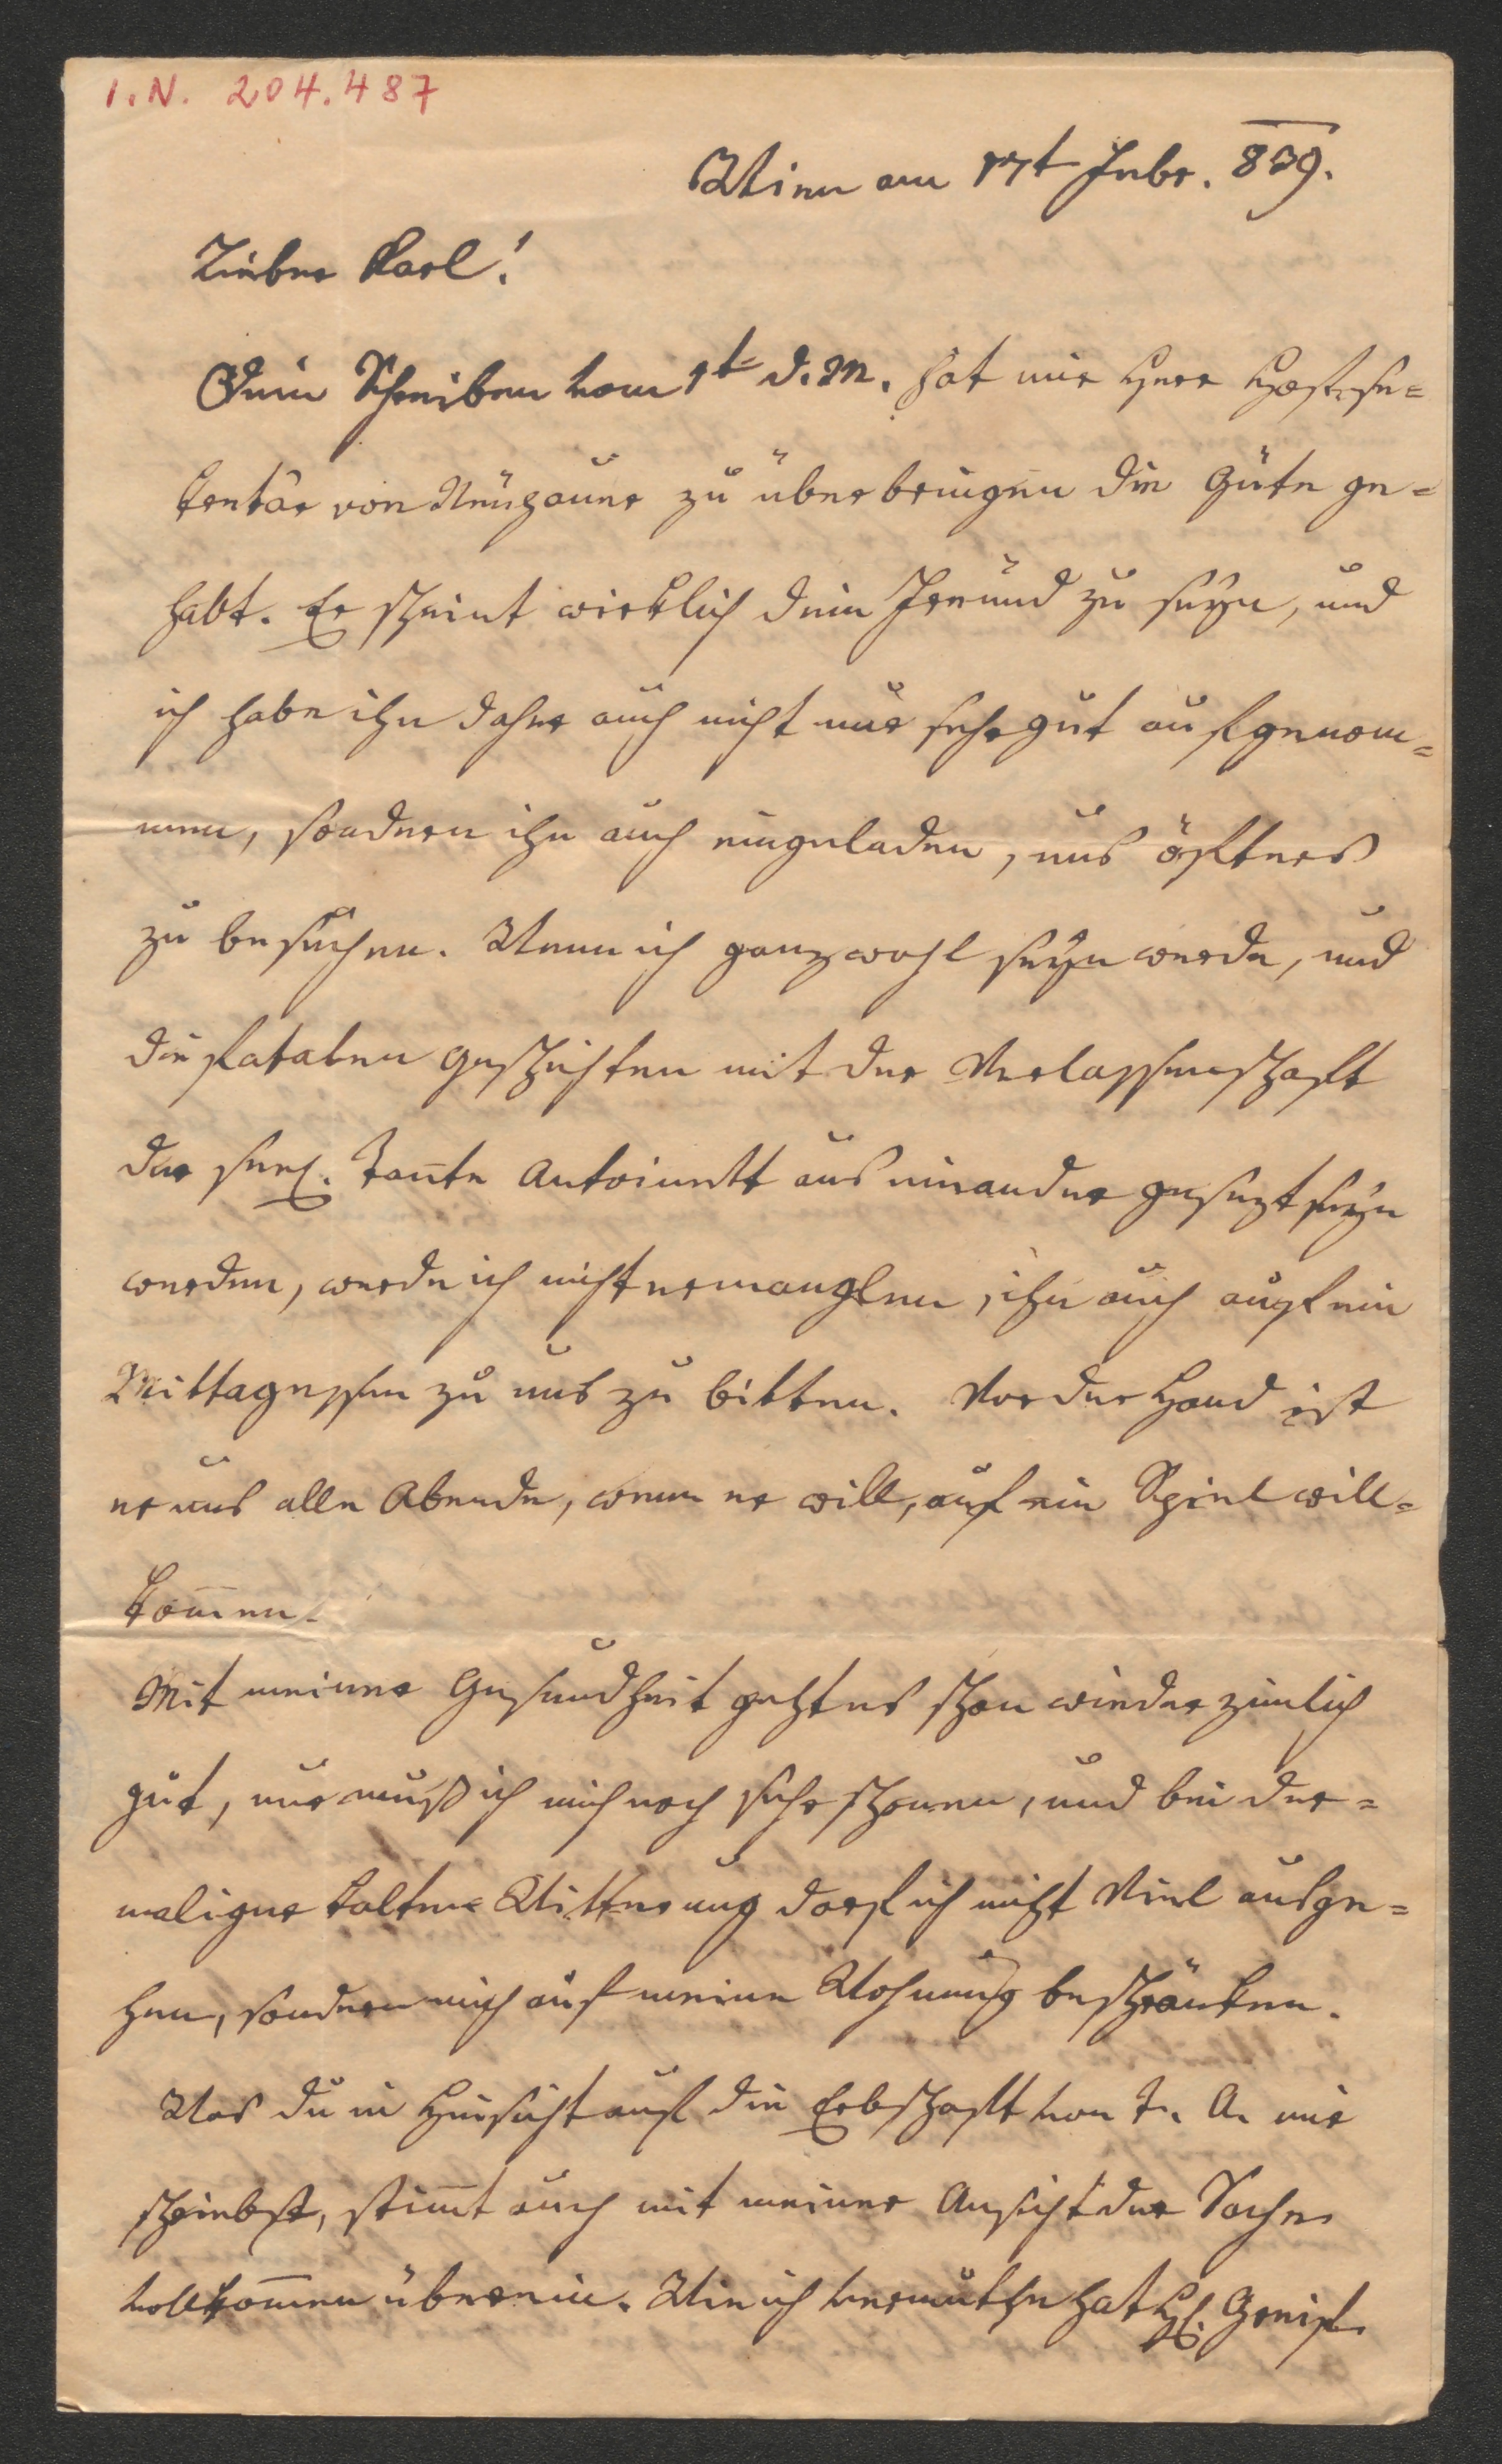 I. N. 204.487
Wien am 17t Febr. 839.
Lieber Karl!
Dein Schreiben vom 1t d. M. hat mir Herr Hofse=
kretär von zu überbringen die Güte ge=
habt. Er scheint wirklich dein Freund zu seyn, und
ich habe ihn daher auch nicht nur sehr gut aufgenom=
men, sondern ihn auch eingeladen, uns öfters
zu besuchen. Wenn ich ganz wohl seyn werde, und
die fatalen Geschichten mit der Verlassenschaft
der seel. Tante Antoinett auseinander gesezt seyn
werden, werde ich nicht ermanglen, ihn auch auf ein
Mittagessen zu uns zu bitten. Vor der Hand ist
er uns alle Abende, wenn er will, auf ein Spiel will=
kom̄en.
Mit meiner Gesundheit geht es schon wieder zimlich
gut, nur muß ich mich noch sehr schonen, und bei der=
maliger kalter Witterung darf ich nicht Viel ausge=
hen, sondern mich auf meine Wohnung beschränken.
Was du in Hinsicht auf die Erbschaft von T. A. mir
schreibst, stim̄t auch mit meiner Ansicht der Sache
vollkom̄en überein. Wie ich vermuthe hat H.